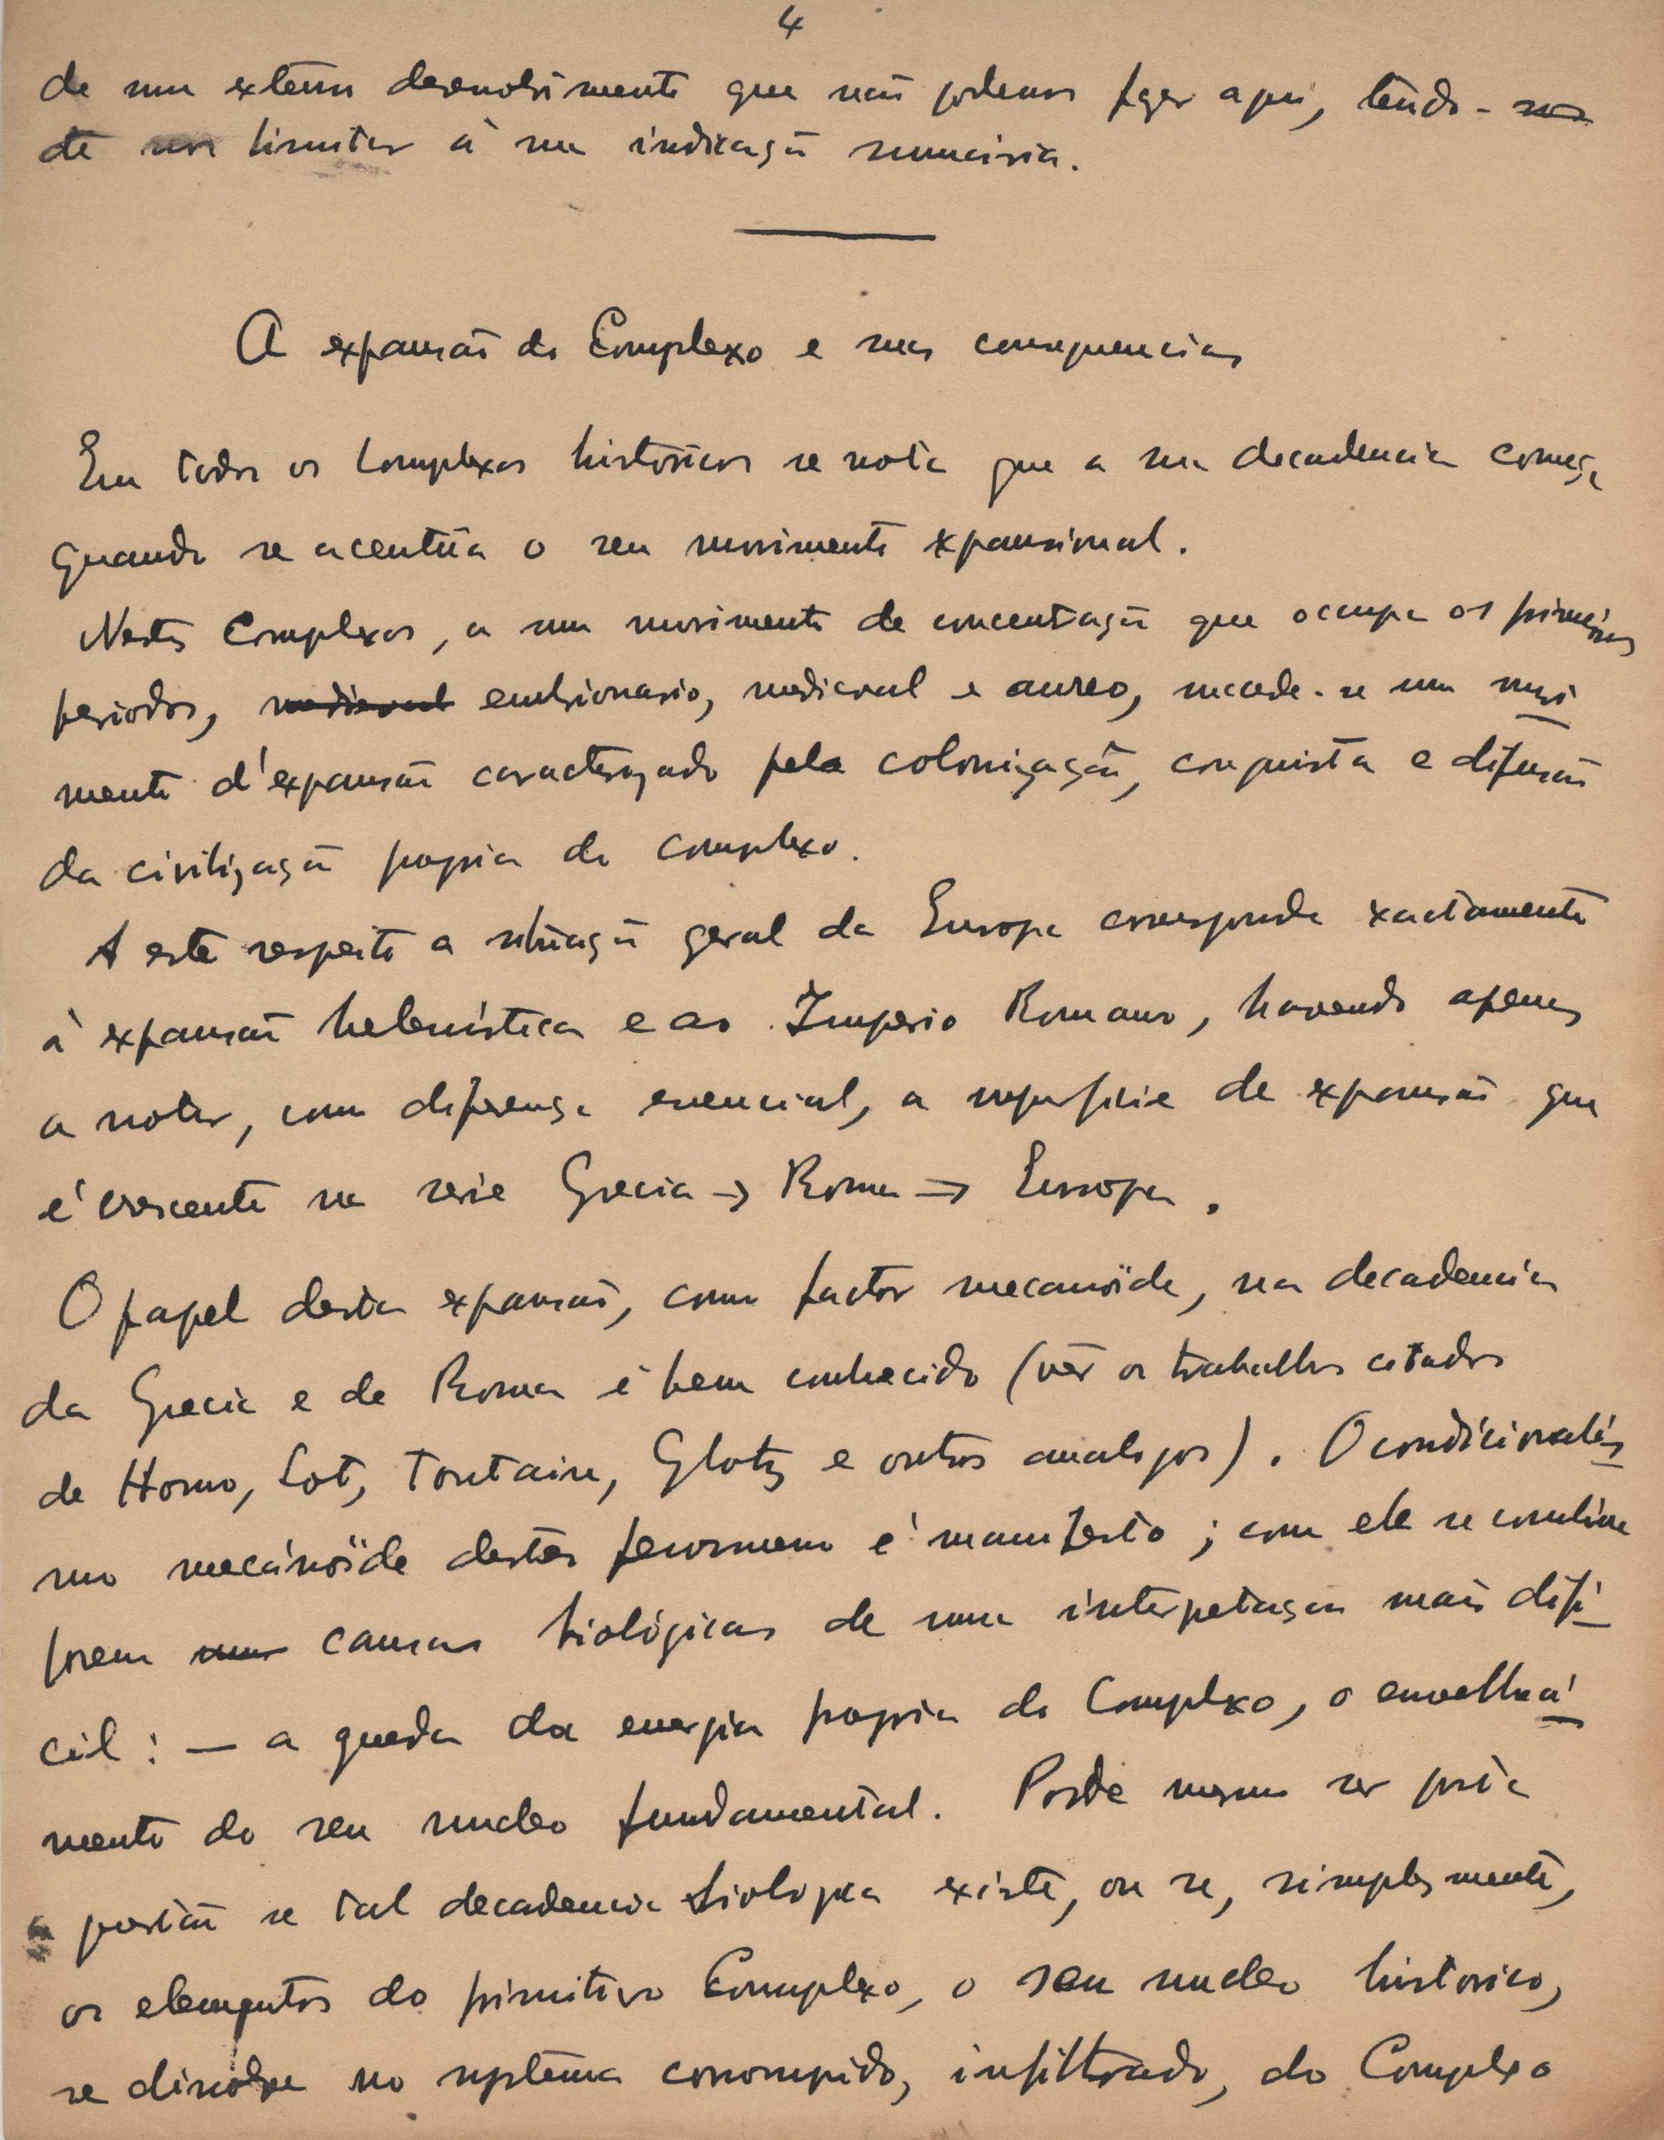 4
de um extenso desenvolvimento que não podemos fazer aqui, tendo-
de nos limitar á sua indicação sumaria.
A expansão do Complexo e suas consequencias
Em todos os Complexos históricos se nota que a sua decadencia começa
quando se acentúa o seu movimento expansional.
Nestes Complexos, a um movimento de concentração que ocupa os primeiros
periodos, medieval embrionario, medieval e aureo, sucede-se um movi
mento d'expansão caracterizado pela colonização, conquista e difusão
da civilização propria do complexo.
A este respeito a situação geral da Europa corresponde exactamente
á expansão helenística e ao Imperio Romano, havendo apenas
a notar, como diferença essencial, a superficie de expansão que
é crescente na serie Grecia → Roma → Europa.
O papel desta expansão, como factor mecanoïde, na decadencia
da Grecia e de Roma é bem conhecido (vêr os trabalhos citados
de Homo, Lot, Toutain, Glotz e outros analogos). O condicionalis
mo mecánoïde destes fenomeno é manifesto; com ele se combina
porem causas biológicas de uma interpetação mais difi
cil: — a queda da energia propria do Complexo, o envelheci
mento do seu nucleo fundamental. Pode mesmo ser posta
a questão se tal decadencia biologica existe, ou se, simplesmente,
os elementos do primitivo Complexo, o seu nucleo historico,
se dissolve no systema corrompido, infiltrado, do Complexo